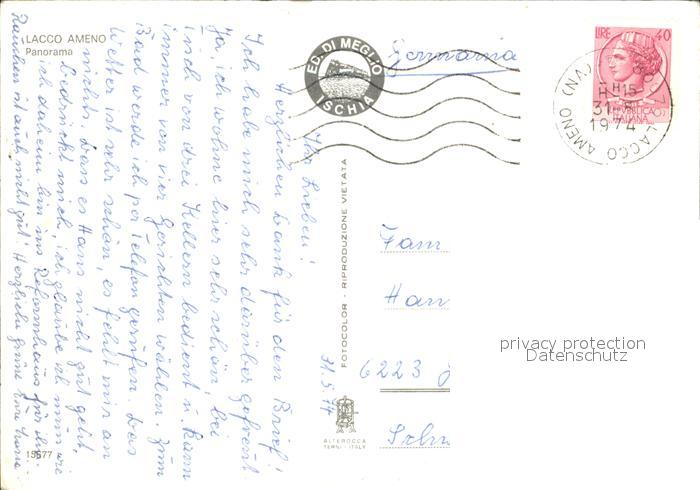 LACCO AMENO
Panorama
Ihr Lieben!
Herzlichen Dank für den Brief!
Ich habe mich sehr darüber gefreut
Ja, ich wohne hier sehr schön, bei
Tisch von drei Kellnern bedient u. kann
immer von vier Gerichten wählen. Zum
Bad werde ich per Telefon gerufen. Das
Wetter ist sehr schön, es fehlt mir an
nichts. Dass es Hans nicht gut geht,
bedrückt mich, ich glaube ich muss wie
ich daheim bin ins Reformhaus für ihn.
Rauchen ist auch nicht gut! Herzliche Grüsse
31.5.74
15577
ED. DI MEGLIO
ISCHIA
Germania
LIRE 40
H15
31 1974
LACCO AMENO (NA)
ITALIANA
FOTOCOLOR - RIPRODUZIONE VIETATA
ALTEROCCA
TERNI - ITALY
Fam
Han
6223
privacy protection
Datenschutz